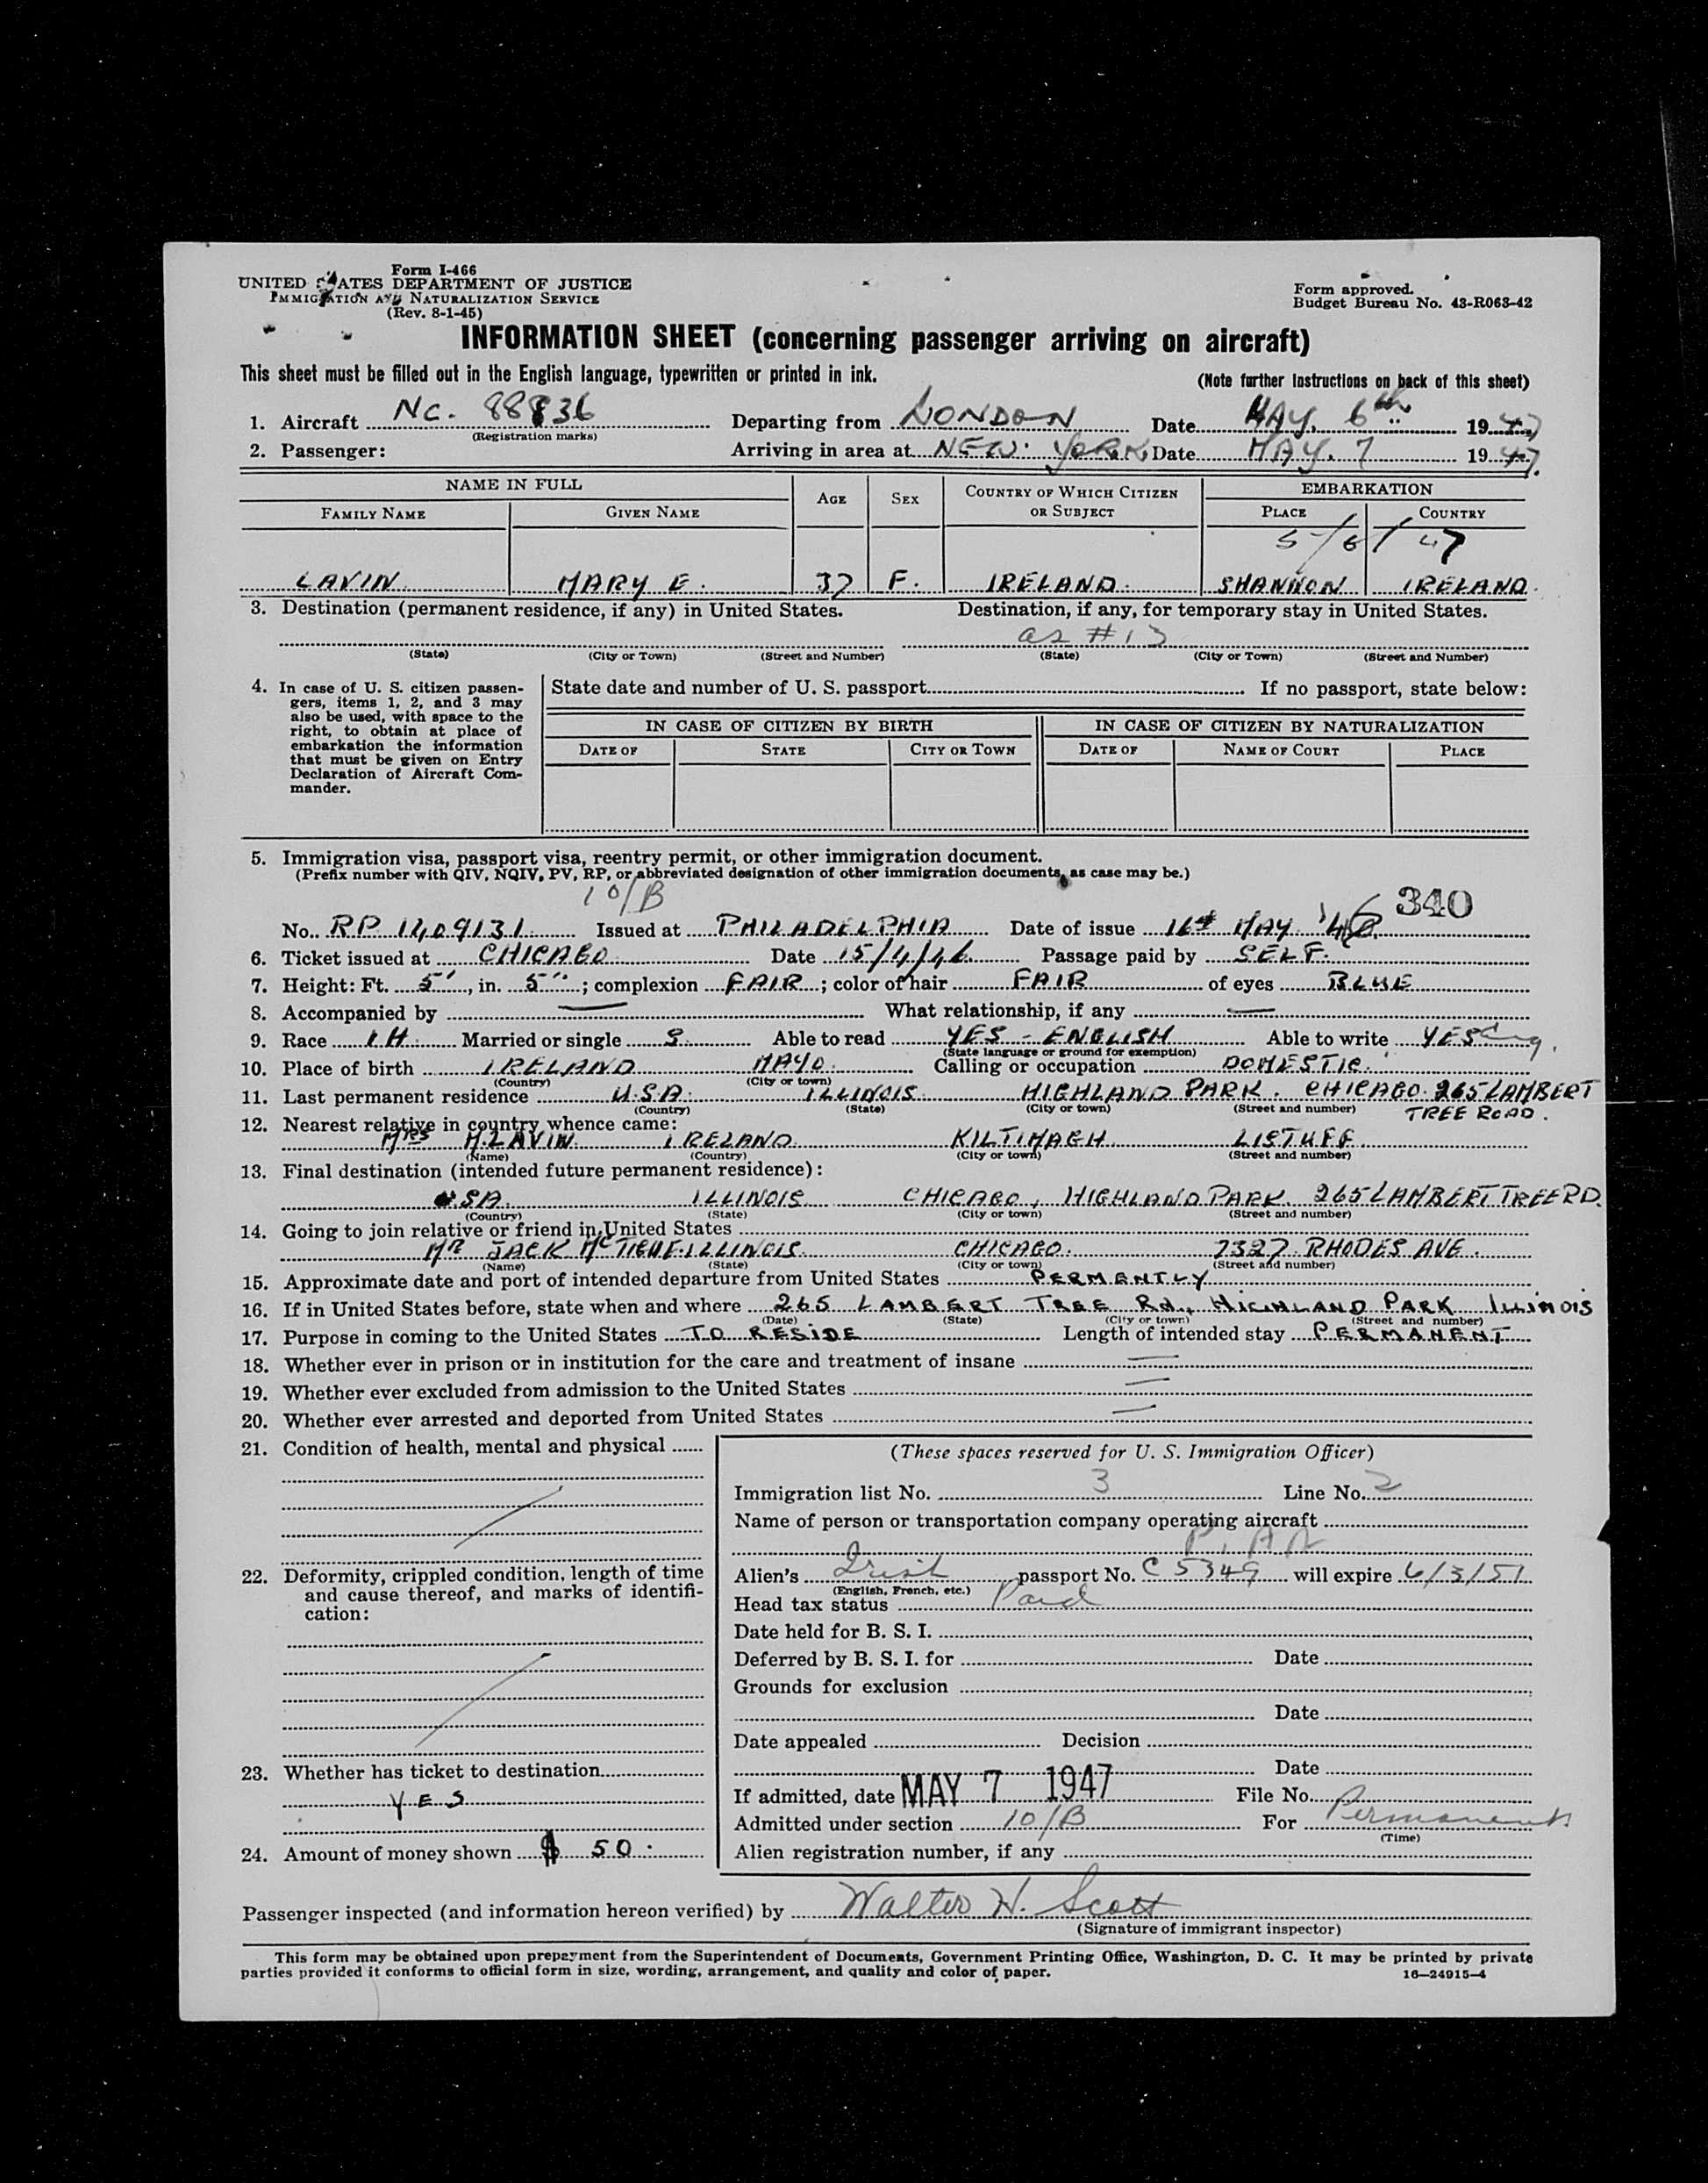 Form I-466
UNITED STATES DEPARTMENT OF JUSTICE
IMMIGRATION AND NATURALIZATION SERVICE
(Rev. 8-1-45)
Form approved.
Budget Bureau No. 43-R063-42
INFORMATION SHEET (concerning passenger arriving on aircraft)
This sheet must be filled out in the English language, typewritten or printed in ink.
(Note further instructions on back of this sheet)
1. Aircraft NC. 88836 Departing from LONDON Date MAY. 6th 1947
(Registration marks)
2. Passenger: Arriving in area at NEW YORK Date MAY. 7 1947.
NAME IN FULL AGE SEX COUNTRY OF WHICH CITIZEN OR SUBJECT EMBARKATION
FAMILY NAME GIVEN NAME PLACE COUNTRY
5/6/47
LAVIN MARY E. 37 F. IRELAND. SHANNON IRELAND.
3. Destination (permanent residence, if any) in United States. Destination, if any, for temporary stay in United States.
as #13
(State) (City or Town) (Street and Number) (State) (City or Town) (Street and Number)
4. In case of U. S. citizen passengers, items 1, 2, and 3 may also be used, with space to the right, to obtain at place of embarkation the information that must be given on Entry Declaration of Aircraft Commander.
State date and number of U. S. passport If no passport, state below:
IN CASE OF CITIZEN BY BIRTH IN CASE OF CITIZEN BY NATURALIZATION
DATE OF STATE CITY OR TOWN DATE OF NAME OF COURT PLACE
5. Immigration visa, passport visa, reentry permit, or other immigration document.
(Prefix number with QIV, NQIV, PV, RP, or abbreviated designation of other immigration documents, as case may be.)
10/B 340
No. RP 1409131 Issued at PHILADELPHIA Date of issue 16th MAY '46
6. Ticket issued at CHICAGO Date 15/4/46 Passage paid by SELF.
7. Height: Ft. 5', in. 5"; complexion FAIR; color of hair FAIR of eyes BLUE
8. Accompanied by — What relationship, if any —
9. Race IH Married or single S. Able to read YES - ENGLISH Able to write YES Eng.
(State language or ground for exemption)
10. Place of birth IRELAND MAYO. Calling or occupation DOMESTIC.
(Country) (City or town)
11. Last permanent residence U.S.A. ILLINOIS. HIGHLAND PARK. CHICAGO. 265 LAMBERT
(Country) (State) (City or town) (Street and number) TREE ROAD.
12. Nearest relative in country whence came:
Mrs M. LAVIN IRELAND KILTIMAGH LISTUFF
(Name) (Country) (City or town) (Street and number)
13. Final destination (intended future permanent residence):
U.SA. ILLINOIS CHICAGO, HIGHLAND PARK 265 LAMBERT TREE RD.
(Country) (State) (City or town) (Street and number)
14. Going to join relative or friend in United States
Mr JACK McTIGUE. ILLINOIS. CHICAGO. 7327 RHODES AVE.
(Name) (State) (City or town) (Street and number)
15. Approximate date and port of intended departure from United States PERMENTLY
16. If in United States before, state when and where 265 LAMBERT TREE Rd., HIGHLAND PARK ILLINOIS
(Date) (State) (City or town) (Street and number)
17. Purpose in coming to the United States TO RESIDE Length of intended stay PERMANENT
18. Whether ever in prison or in institution for the care and treatment of insane —
19. Whether ever excluded from admission to the United States —
20. Whether ever arrested and deported from United States —
21. Condition of health, mental and physical
22. Deformity, crippled condition, length of time and cause thereof, and marks of identification:
23. Whether has ticket to destination
YES
24. Amount of money shown $ 50.
(These spaces reserved for U. S. Immigration Officer)
Immigration list No. 3 Line No. 2
Name of person or transportation company operating aircraft
P. A A
Alien's Irish passport No. C 5349 will expire 6/3/51
(English, French, etc.)
Head tax status Paid
Date held for B. S. I.
Deferred by B. S. I. for Date
Grounds for exclusion
Date
Date appealed Decision
Date
If admitted, date MAY 7 1947 File No.
Admitted under section 10/B For Permanent
(Time)
Alien registration number, if any
Passenger inspected (and information hereon verified) by Walter H. Scott
(Signature of immigrant inspector)
This form may be obtained upon prepayment from the Superintendent of Documents, Government Printing Office, Washington, D. C. It may be printed by private
parties provided it conforms to official form in size, wording, arrangement, and quality and color of paper. 16—24915-4